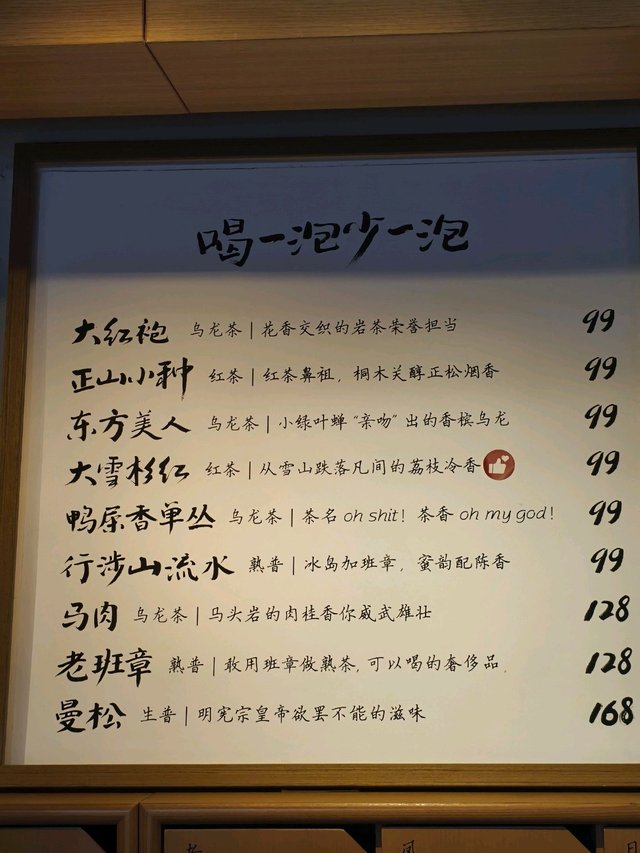 喝一泡少一泡
大红袍 乌龙茶 | 花香交织的岩茶荣誉担当 99
正山小种 红茶 | 红茶鼻祖，桐木关醇正松烟香 99
东方美人 乌龙茶 | 小绿叶蝉“亲吻”出的香槟乌龙 99
大雪杉红 红茶 | 从雪山跌落凡间的荔枝冷香 99
鸭屎香单丛 乌龙茶 | 茶名 oh shit！茶香 oh my god！ 99
行涉山流水 熟普 | 冰岛加班章，蜜韵配陈香 99
马肉 乌龙茶 | 马头岩的肉桂香你威武雄壮 128
老班章 熟普 | 敢用班章做熟茶，可以喝的奢侈品 128
曼松 生普 | 明宪宗皇帝欲罢不能的滋味 168